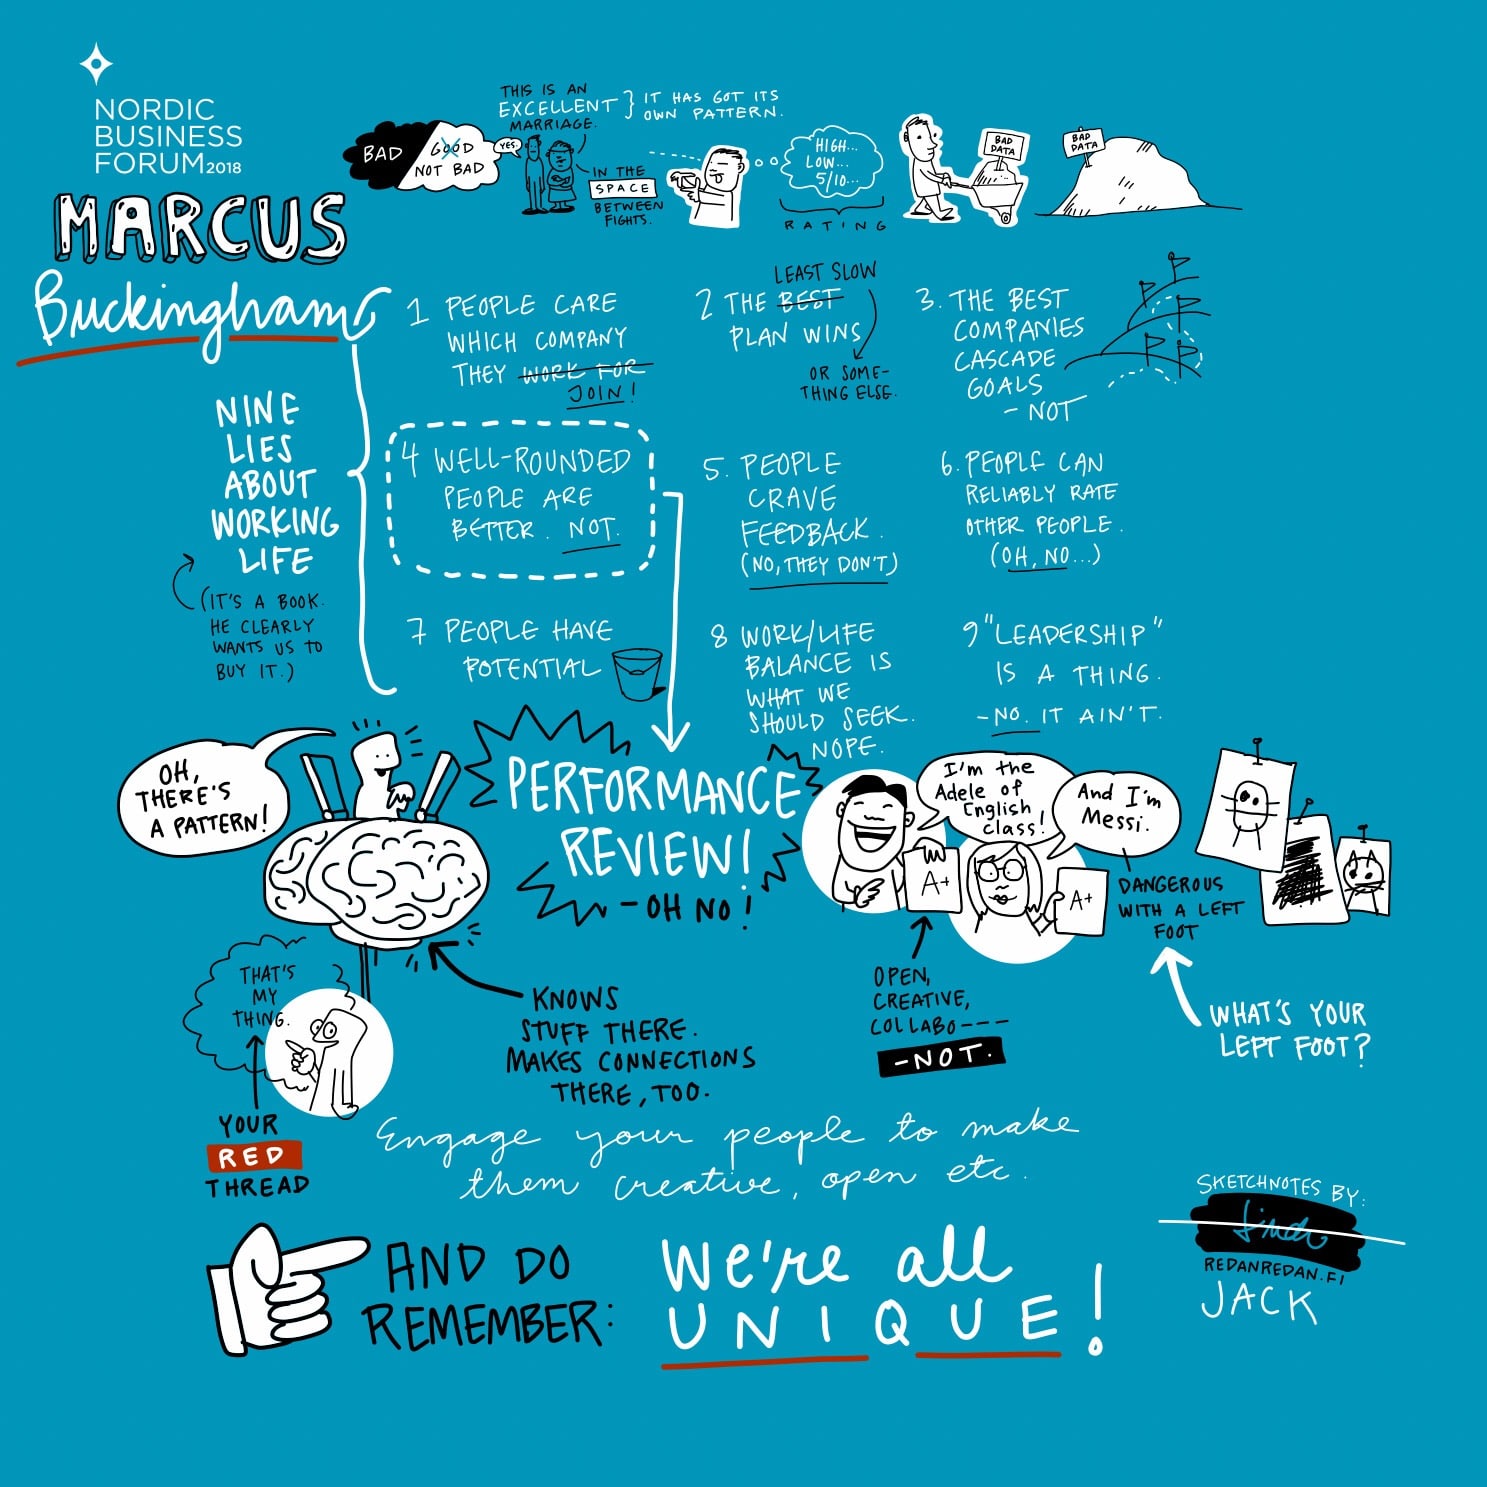 NORDIC
BUSINESS
FORUM 2018
MARCUS
Buckingham
BAD
GOOD
NOT BAD
YES.
THIS IS AN
EXCELLENT
MARRIAGE.
IT HAS GOT ITS
OWN PATTERN.
IN THE
SPACE
BETWEEN
FIGHTS.
HIGH...
LOW...
5/10...
RATING
BAD
DATA
BAD
DATA
NINE
LIES
ABOUT
WORKING
LIFE
(IT'S A BOOK.
HE CLEARLY
WANTS US TO
BUY IT.)
1 PEOPLE CARE
WHICH COMPANY
THEY WORK FOR
JOIN!
LEAST SLOW
2 THE BEST
PLAN WINS
OR SOME-
THING ELSE.
3. THE BEST
COMPANIES
CASCADE
GOALS
- NOT
4 WELL-ROUNDED
PEOPLE ARE
BETTER. NOT.
5. PEOPLE
CRAVE
FEEDBACK.
(NO, THEY DON'T)
6. PEOPLE CAN
RELIABLY RATE
OTHER PEOPLE.
(OH, NO...)
7 PEOPLE HAVE
POTENTIAL
8 WORK/LIFE
BALANCE IS
WHAT WE
SHOULD SEEK.
NOPE.
9 "LEADERSHIP"
IS A THING.
- NO. IT AIN'T.
OH,
THERE'S
A PATTERN!
PERFORMANCE
REVIEW!
- OH NO!
I'm the
Adele of
English
class!
And I'm
Messi.
A+
A+
DANGEROUS
WITH A LEFT
FOOT
WHAT'S YOUR
LEFT FOOT?
OPEN,
CREATIVE,
COLLABO----
-NOT.
THAT'S
MY
THING.
YOUR
RED
THREAD
KNOWS
STUFF THERE.
MAKES CONNECTIONS
THERE, TOO.
Engage your people to make
them creative, open etc.
AND DO
REMEMBER:
We're all
UNIQUE!
SKETCHNOTES BY:
REDANREDAN.FI
JACK